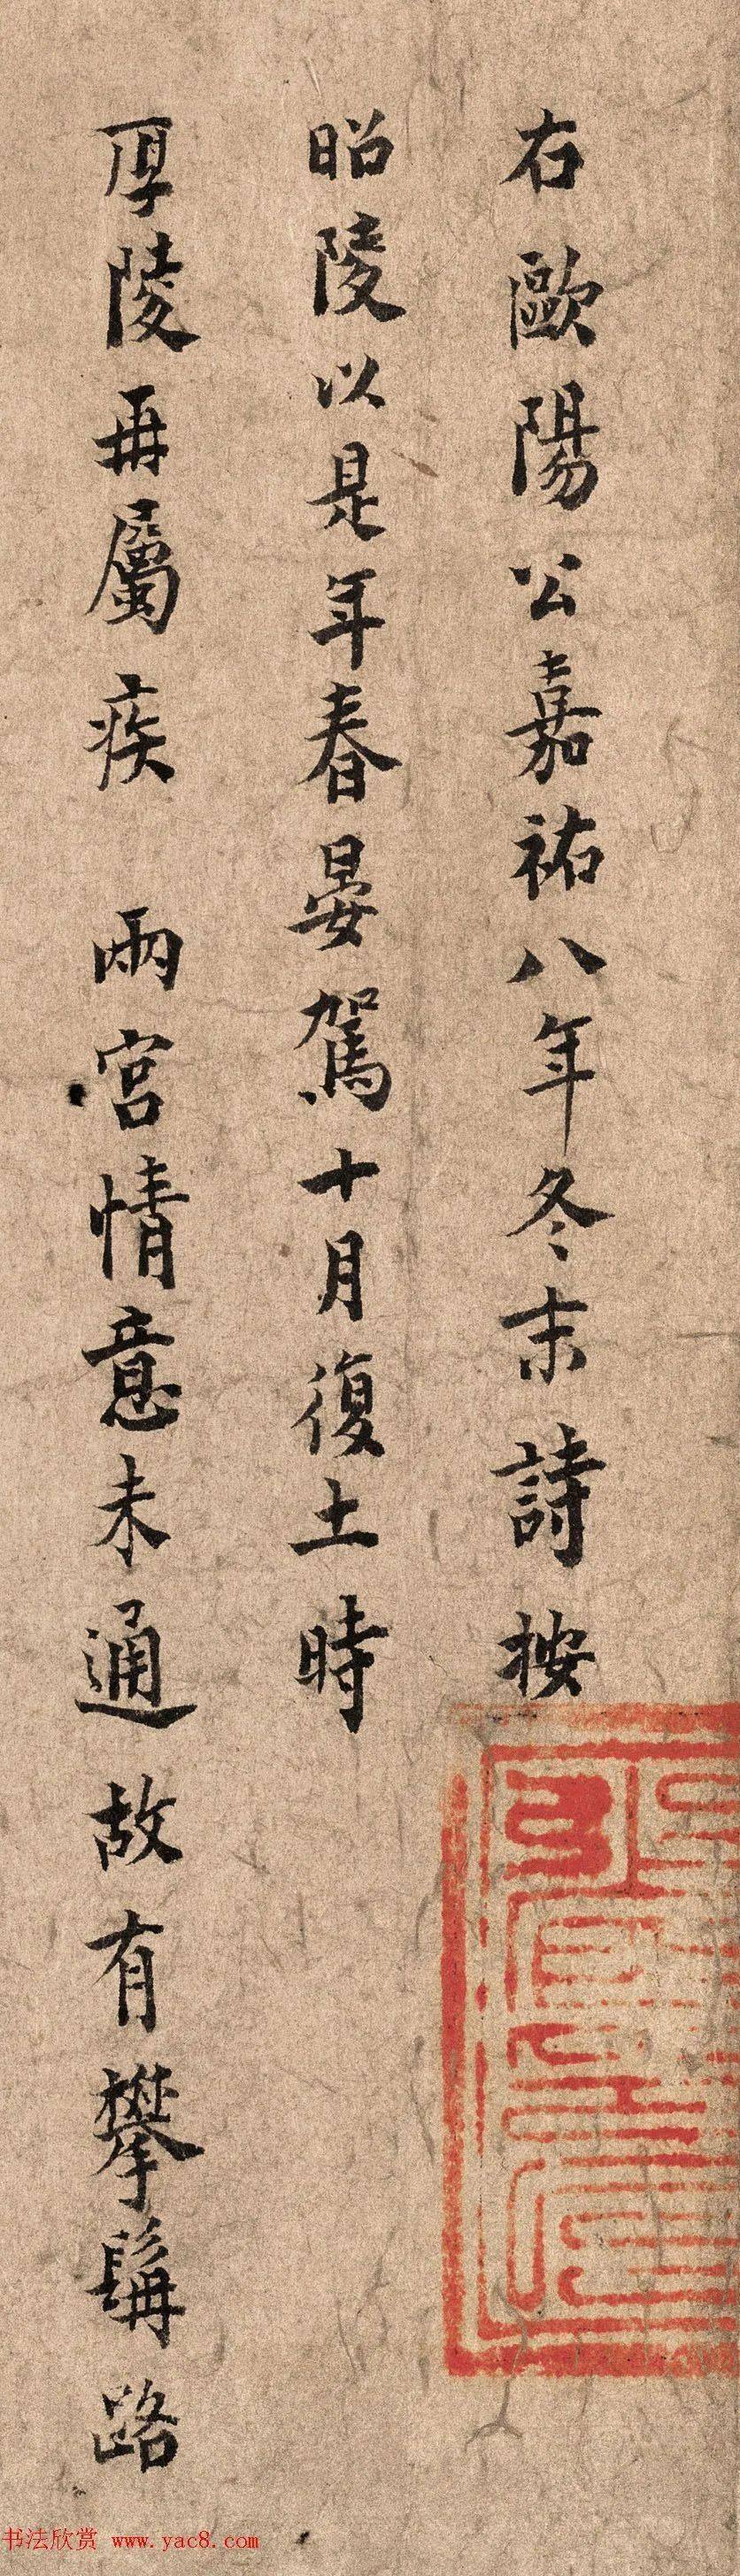 右歐陽公嘉祐八年冬末詩按
昭陵以是年春晏駕十月復土時
厚陵再屬疾 兩宮情意未通故有攀髯路
书法欣赏 www.yac8.com